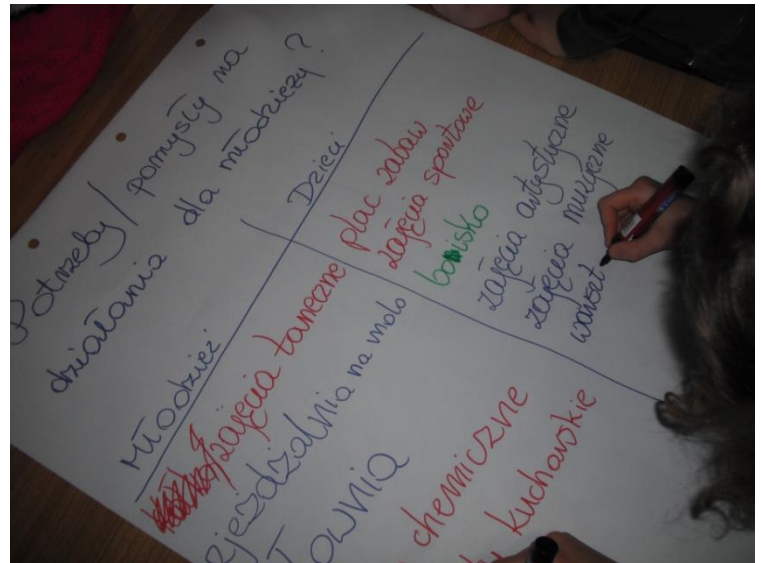 Potrzeby / pomysły na
działania dla młodzieży?
Młodzież
zajęcia taneczne
zjeżdżalnia na molo
chemiczne
kucharskie
Dzieci
plac zabaw
zajęcia sportowe
boisko
zajęcia artystyczne
zajęcia muzyczne
warszt